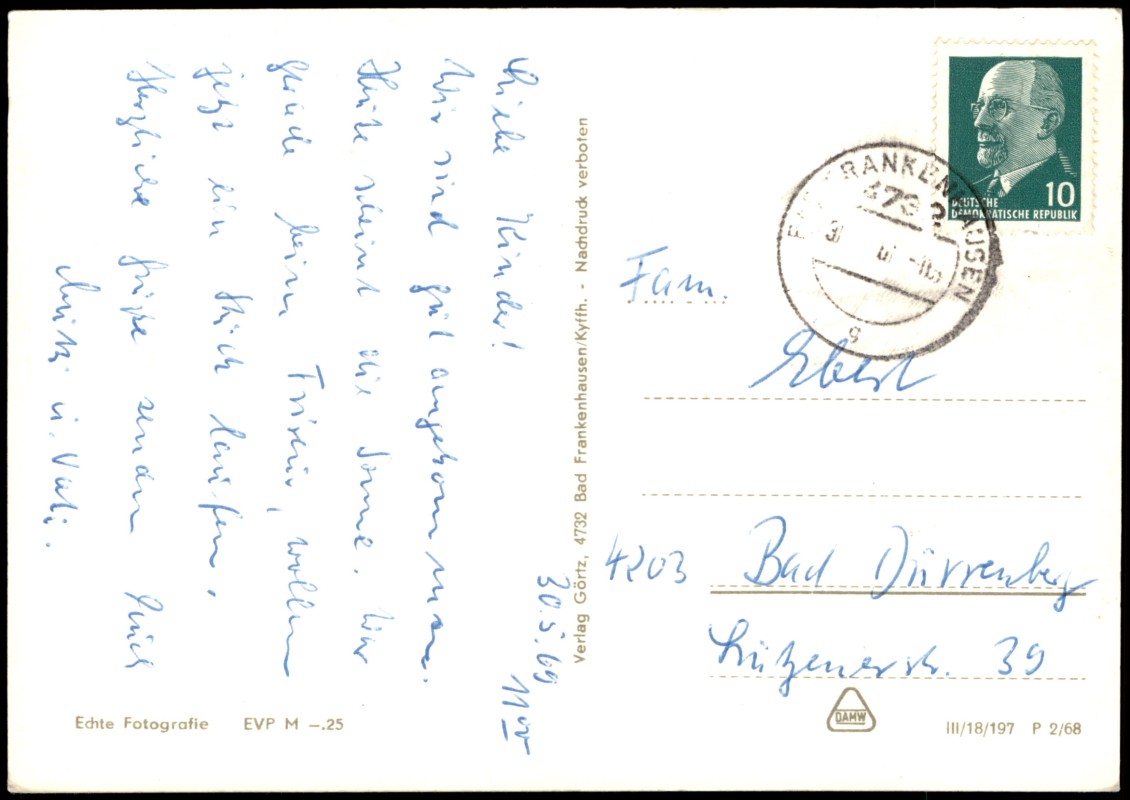 30.5.69
11oo
Liebe Kinder!
Wir sind gut angekommen.
Heute scheint die Sonne. War
gerade beim Friseur, wollen
jetzt ein Stück laufen.
Herzliche Grüße senden Euch
Mutti u. Vati.
Verlag Görtz, 4732 Bad Frankenhausen/Kyffh. - Nachdruck verboten
Echte Fotografie EVP M –.25
10
DEUTSCHE
DEMOKRATISCHE REPUBLIK
FRANKENHAUSEN
4732
g
Fam.
Ebert
4203 Bad Dürrenberg
Lützenerstr. 39
DAMW
III/18/197 P 2/68